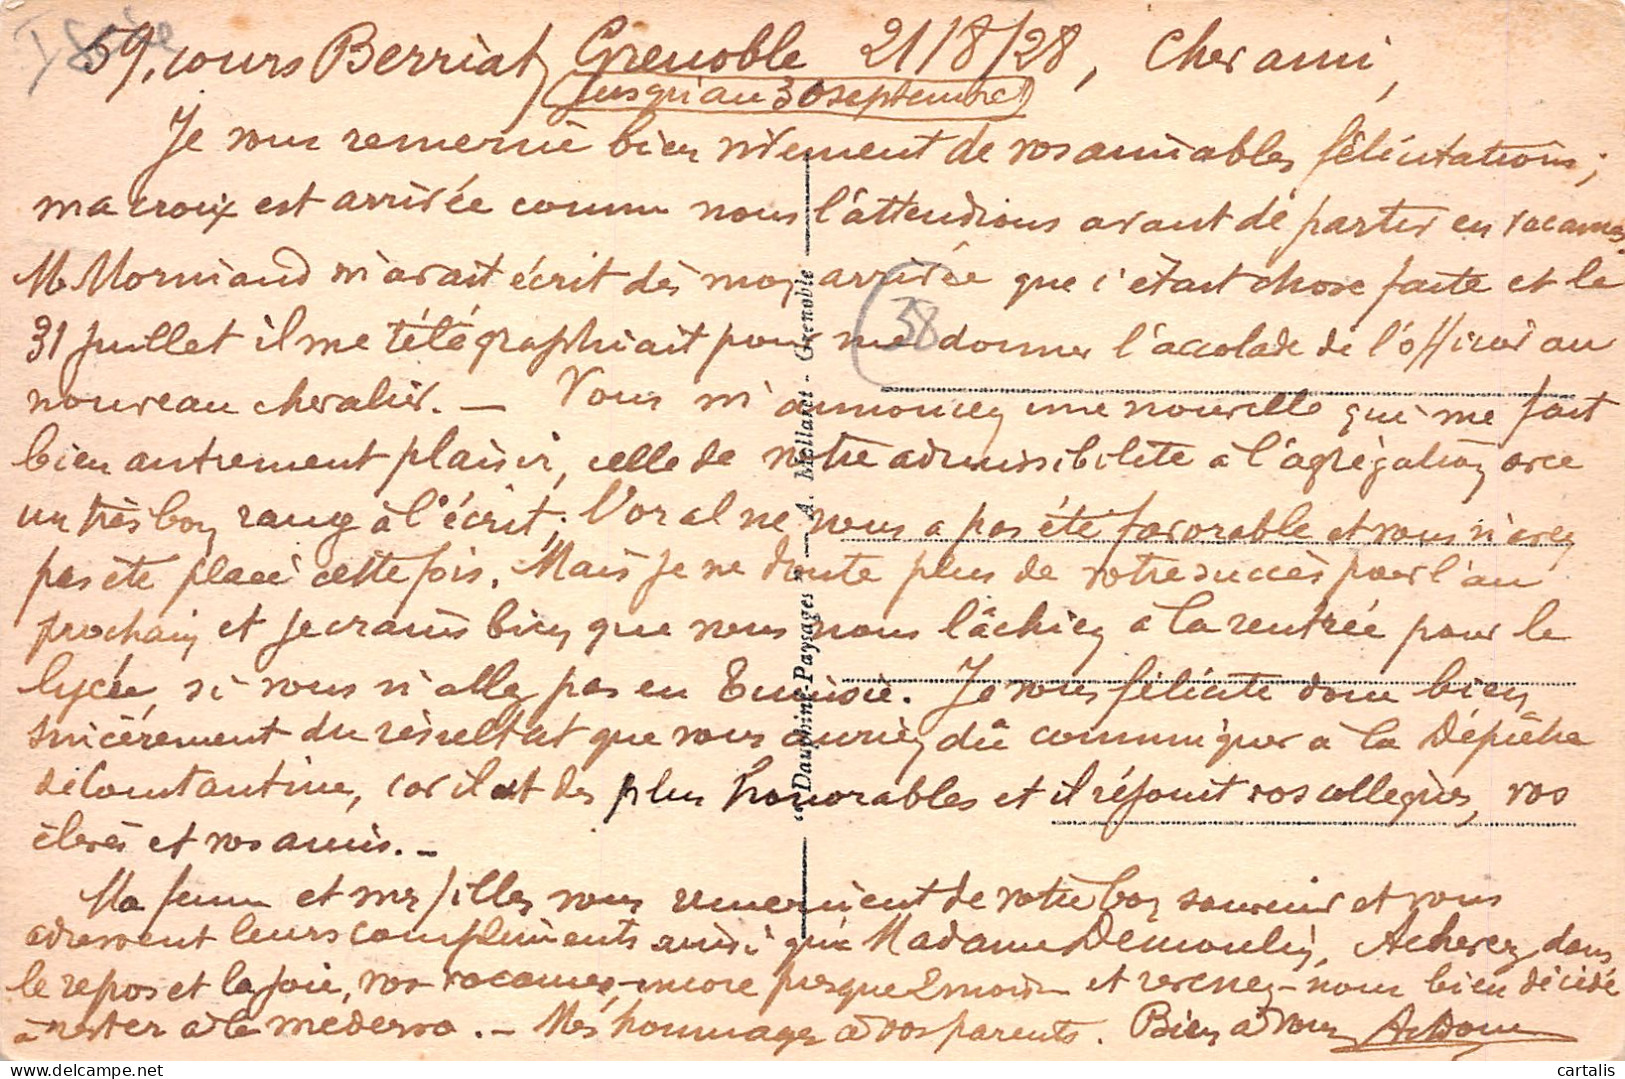 59, cours Berriat, Grenoble 21/8/28, Cher ami,
Jusqu'au 30 septembre
Je vous remercie bien vivement de vos aimables félicitations;
ma croix est arrivée comme nous l'attendions avant de partir en vacances
M Morinaud m'avait écrit dès mon arrivée que c'était chose faite et le
31 Juillet il me télégraphiait pour me donner l'accolade de l'officier au
nouveau chevalier. — Vous m'annoncez une nouvelle qui me fait
bien autrement plaisir, celle de votre admissibilité à l'agrégation avec
un très bon rang à l'écrit; l'oral ne vous a pas été favorable et vous n'avez
pas été placé cette fois. Mais je ne doute plus de votre succès pour l'an
prochain et je crains bien que vous nous lâchiez à la rentrée pour le
lycée, si vous n'allez pas en Tunisie. Je vous félicite donc bien
sincèrement du résultat que vous auriez dû communiquer à la Dépêche
de Constantine, car il est des plus honorables et il réjouit vos collègues, vos
élèves et vos amis. —
Ma femme et mes filles vous remercient de votre bon souvenir et vous
adressent leurs compliments ainsi qu'à Madame Demoulin. Achevez dans
le repos et la joie, vos vacances, encore presque 2 mois et revenez-nous bien décidé
à rester à la médersa. — Mes hommages à vos parents. Bien à vous
Isère
(38
"Dauphiné-Paysages" — A. Mollaret - Grenoble
cartalis